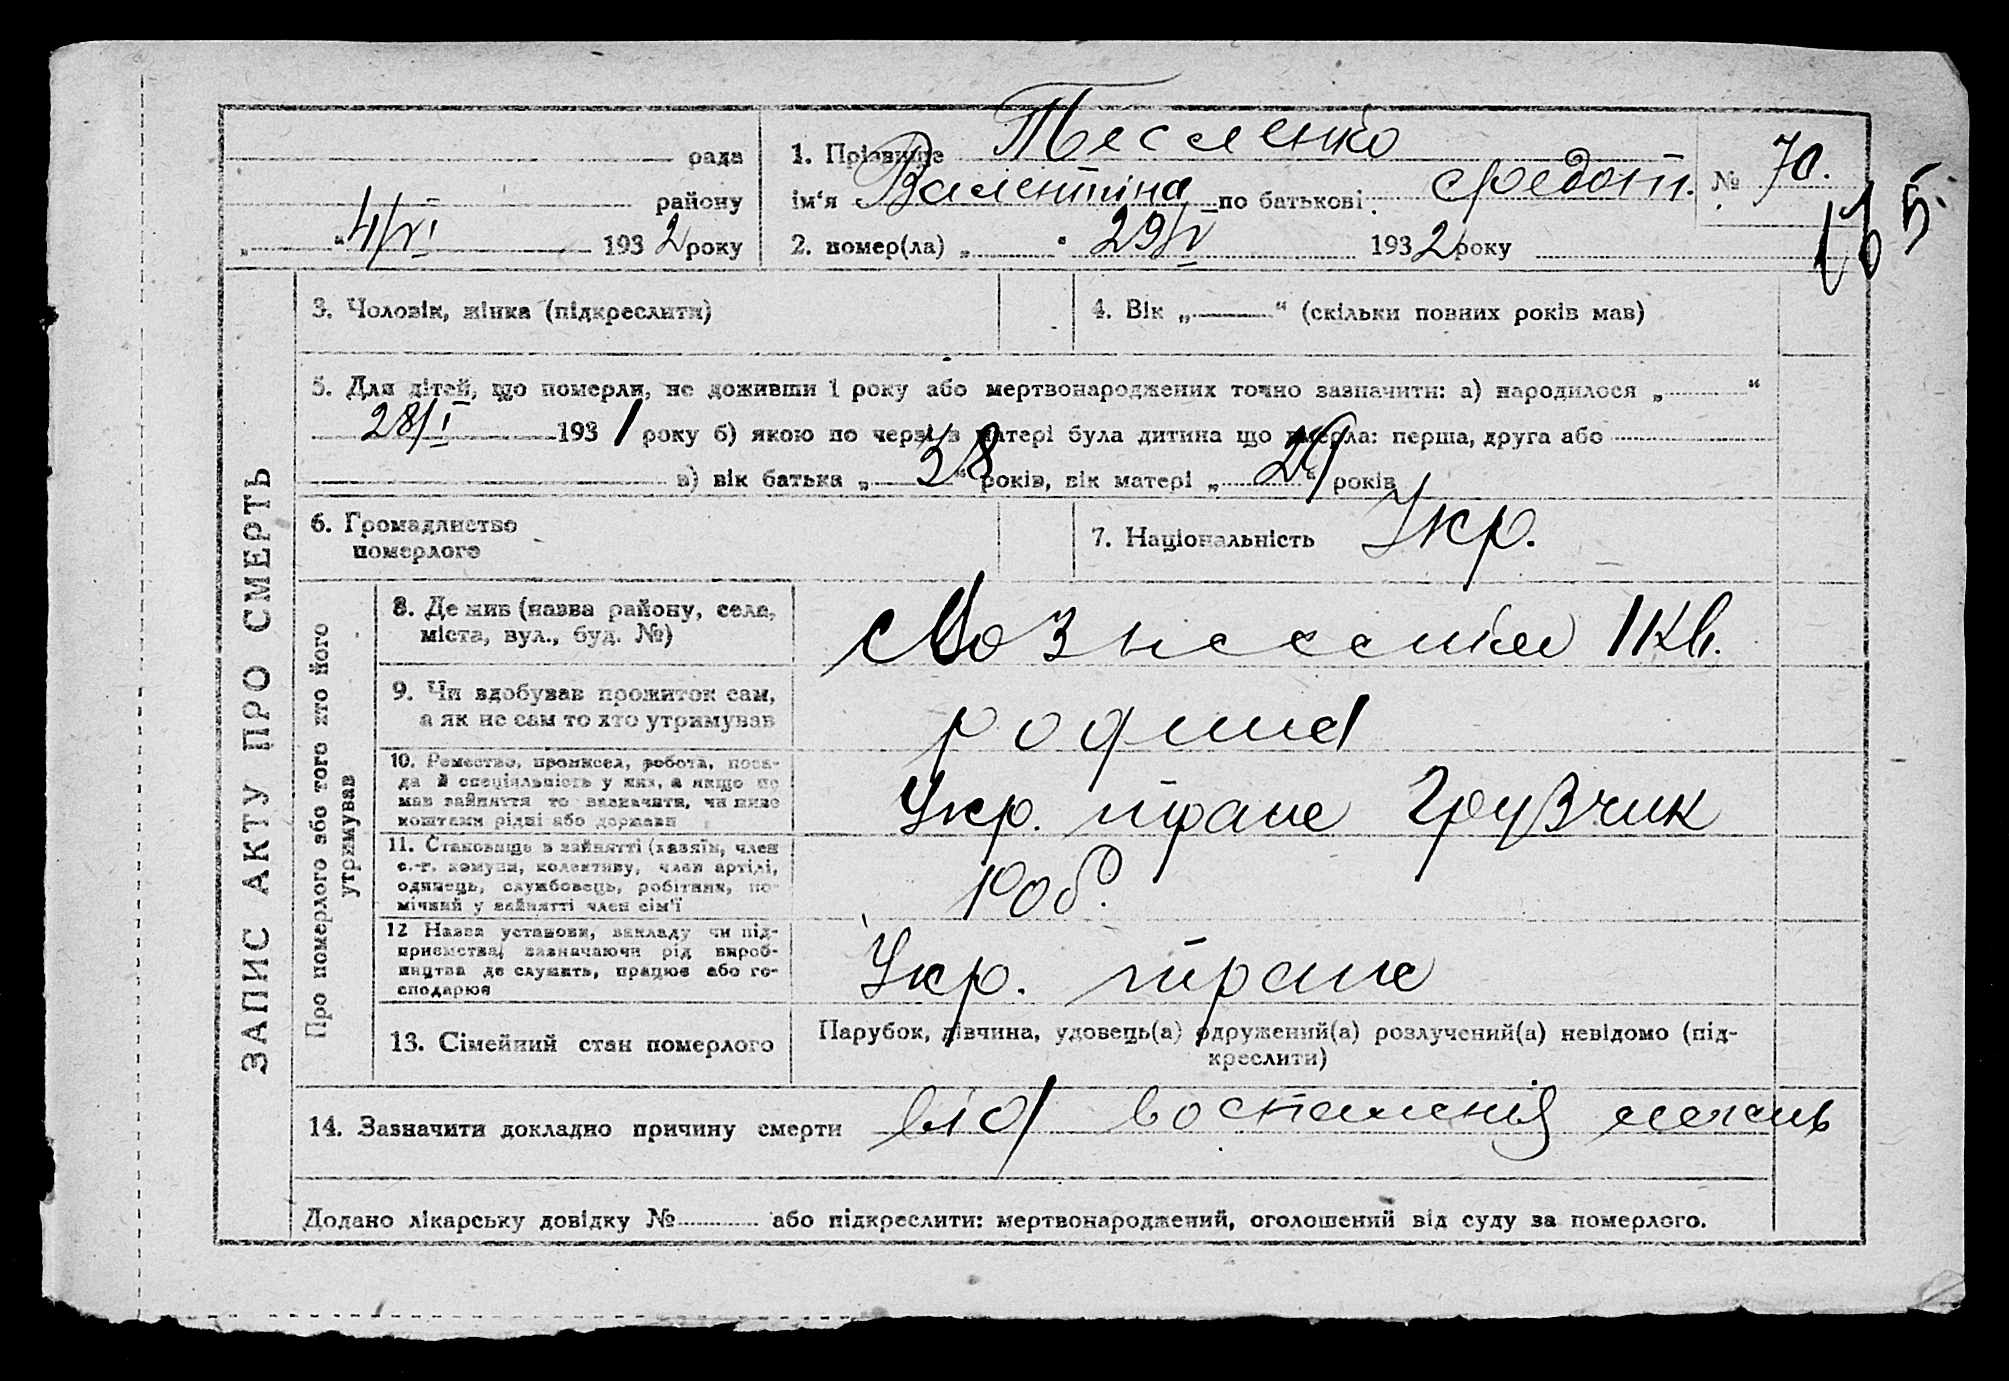 рада
району
„ “ 4/VI 1932 року
1. Прізвище Тесленко
ім'я Валентіна по батькові Федот.
2. помер(ла) „ “ 29/V 1932 року
№ 70.
165
ЗАПИС АКТУ ПРО СМЕРТЬ
3. Чоловік, жінка (підкреслити)
4. Вік „ “ (скільки повних років мав)
5. Для дітей, що померли, не доживши 1 року або мертвонароджених точно зазначити: а) народилося „ “
28/I 1931 року б) якою по черзі в матері була дитина що вмерла: перша, друга або
в) вік батька „38“ років, вік матері „29“ років
6. Громадянство
померлого
7. Національність Укр.
Про померлого або того хто його
утримував
8. Де жив (назва району, села,
міста, вул., буд. №)
Вознесенка 1 кв.
9. Чи здобував прожиток сам,
а як не сам то хто утримував
родина
10. Ремество, промисел, робота, поса-
да й спеціяльність у них, а якщо не
мав зайняття то зазначити, чи живе
коштами рідні або держави
Укр. транс Грузчик
11. Становище в зайнятті (хазяїн, член
с.-г. комуни, колективу, член артілі,
одинець, службовець, робітник, по-
мічний у зайнятті член сім'ї
Роб.
12 Назва установи, закладу чи під-
приємства, зазначаючи рід вироб-
ництва де служить, працює або го-
сподарює
Укр. транс
13. Сімейний стан померлого
Парубок, дівчина, удовець(а) одружений(а) розлучений(а) невідомо (під-
креслити)
14. Зазначити докладно причину смерти від воспаленія легень
Додано лікарську довідку № або підкреслити: мертвонароджений, оголошений від суду за померлого.